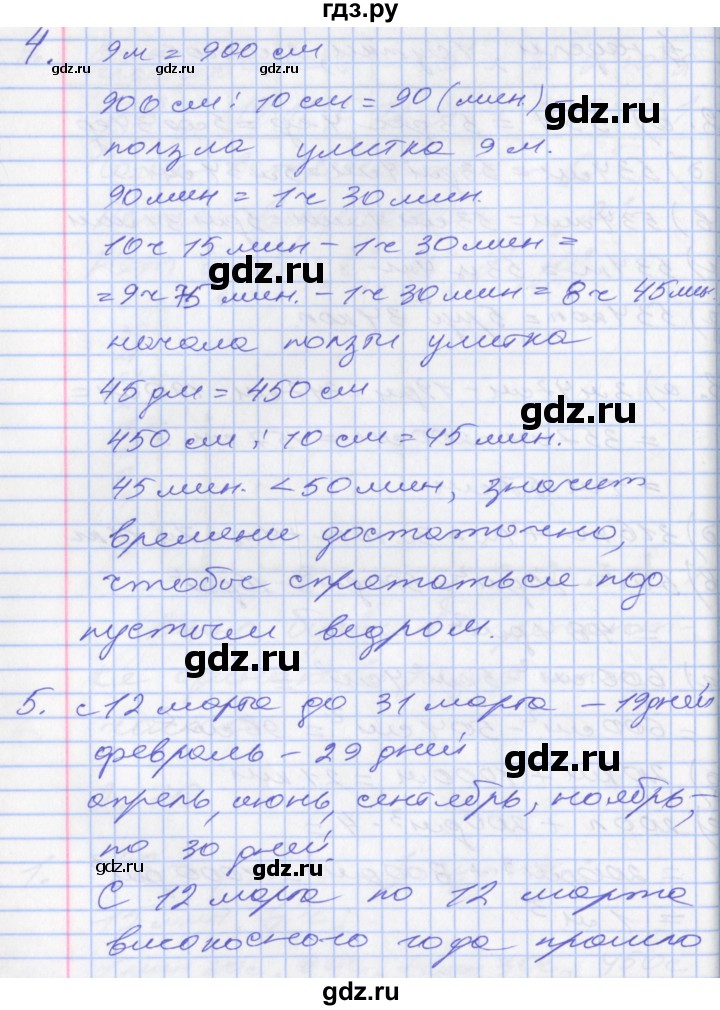 гдз.ру
4. 9м = 900 см
gdz.ru gdz.ru gdz.ru
900 см : 10 см = 90 (мин) –
gdz.ru
ползла улитка 9 м.
90мин = 1ч 30мин.
10ч 15мин – 1ч 30мин =
gdz.ru
= 9ч 75 мин. – 1ч 30мин = 8ч 45мин
начала ползти улитка
45дм = 450см
gdz.ru
450 см : 10 см = 45мин.
45мин. < 50мин, значит
времени достаточно,
чтобы спрятаться под
пустым ведром.
gdz.ru
5. с 12 марта до 31 марта – 19дней
февраль – 29 дней
gdz.ru
апрель, июнь, сентябрь, ноябрь –
по 30 дней.
gdz.ru gdz.ru gdz.ru
С 12 марта по 12 марта
високосного года прошло
gdz.ru